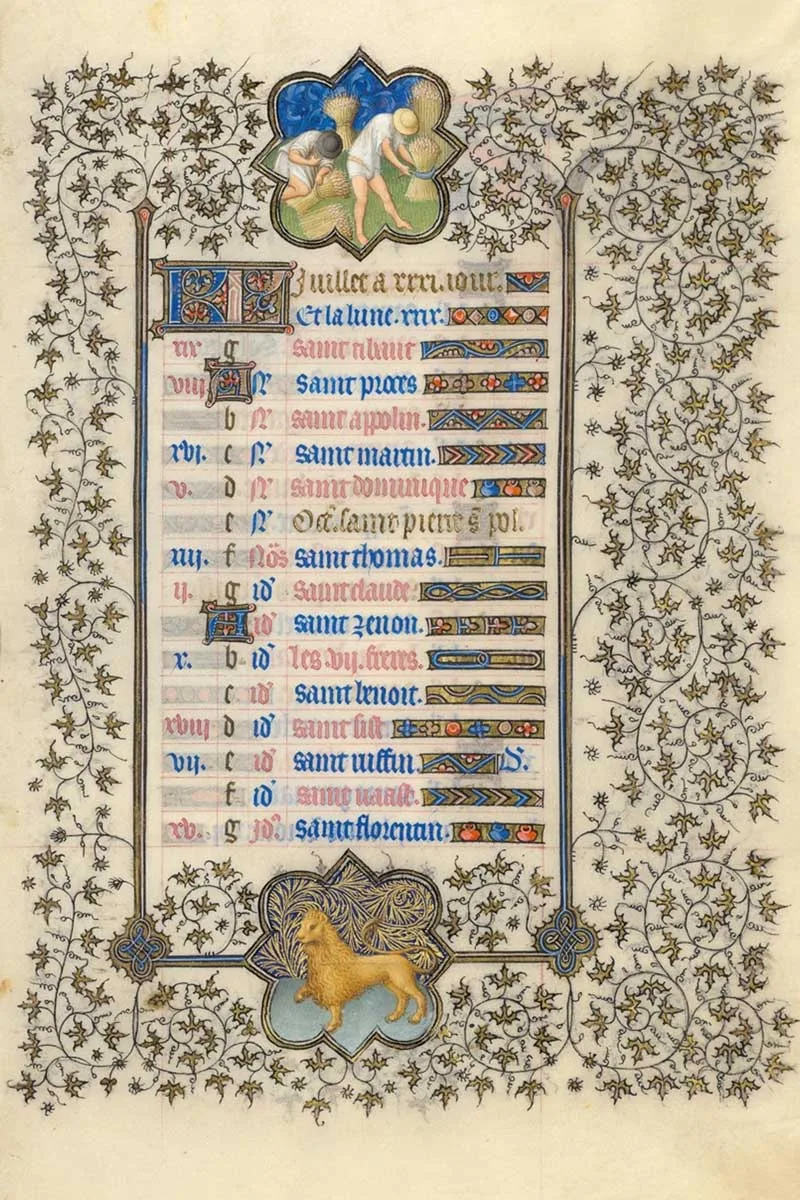 KL Juillet a xxxi. iour.
Et la lune. xxx.
xix g saint tibaut
viii A N̄ saint proces
b N̄ saint appolin.
xvi. c N̄ saint martin.
v. d N̄ saint dominique
e N̄ Oct̄. saint pierre ⁊ s̄ pol.
xiii. f Nos̄ saint thomas.
ii. g id̄ saint claude
A id̄ saint zenon.
x. b id̄ les .vii. freres.
c id̄ saint benoit.
xviii d id̄ saint sist
vii. e id̄ saint ruffin. D.
f id̄ saint vaast.
xv. g Id̄. saint florentin.